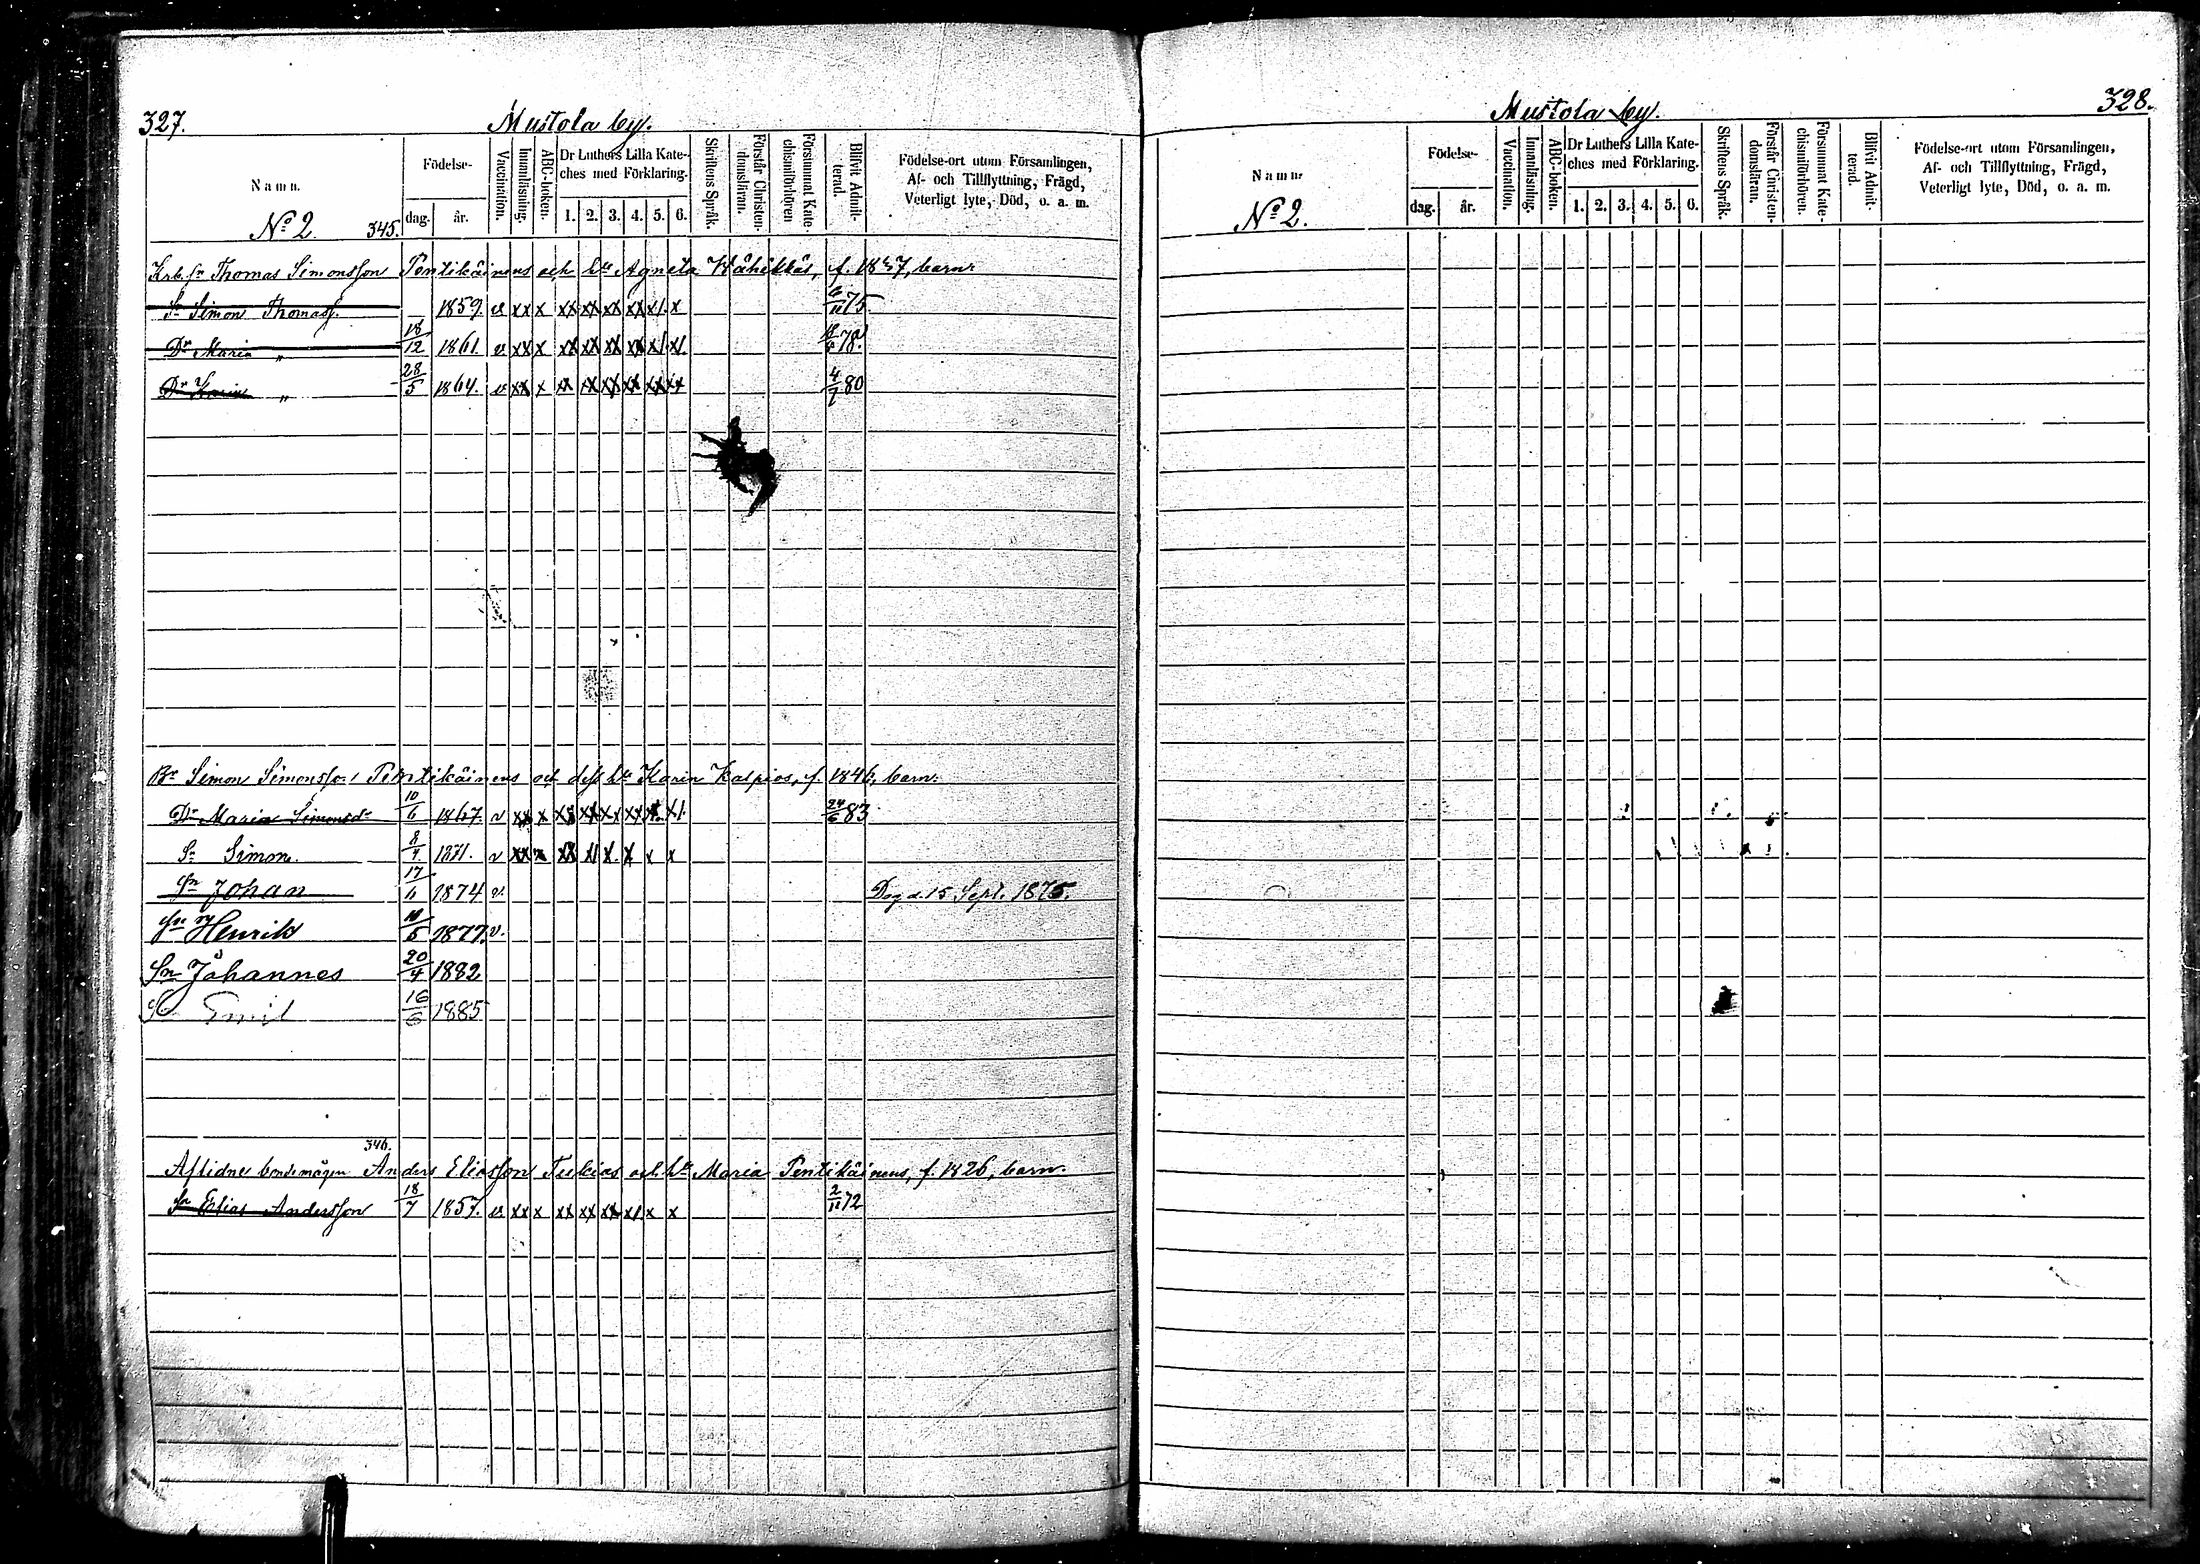 327.
Mustola by.
Namn.
Födelse-
dag.
år.
Vaccination.
Innanläsning.
ABC-boken.
Dr Luthers Lilla Kate-
ches med Förklaring.
1. 2. 3. 4. 5. 6.
Skriftens Språk.
Förstår Christen-
domsläran.
Försummat Kate-
chismiförhören
Blifvit Admit-
terad.
Födelse-ort utom Församlingen,
Af- och Tillflyttning, Frägd,
Veterligt lyte, Död, o. a. m.
No 2. 345.
Thomas Simonsson Pentikäinens och h:u Agneta f. 1837, barn:
Sn Simon Thomass. 1859. v xx x xx xx xx xx x/. x 6/11 75.
Dr Maria „ 18/12 1861. v xx x xx xx xx xx x/. x/. 78.
Dr Karin „ 28/5 1864. v xx x xx xx xx xx xx xx 4/7 80
Br Simon Simonsson Pentikäinens och dess h:u Karin Kalpios, f. 1846, barn:
Dr Maria Simonsdr 10/6 1867. v xx x xx xx xx xx x. x/. 24/6 83.
Sn Simon. 1871. v xx x xx x/ x/. x x x
Sn Johan 17/6 1874 v. Dog d. 15 Sept. 1875.
Sn Henrik 1877. v.
Sn Johannes 20/4 1882
S Emil 16/6 1885
346.
Aflidne bondemågen Anders Eliasson Tukias och h:u Maria Pentikäinens, f. 1826, barn:
Sn Elias Andersson 18/7 1857. v xx x xx xx xx x/. x x 2/11 72
328.
Mustola by.
Namn
Födelse-
dag.
år.
Vaccination.
Innanläsning.
ABC-boken.
Dr Luthers Lilla Kate-
ches med Förklaring.
1. 2. 3. 4. 5. 6.
Skriftens Språk.
Förstår Christen-
domsläran.
Försummat Kate-
chismiförhören.
Blifvit Admit-
terad.
Födelse-ort utom Församlingen,
Af- och Tillflyttning, Frägd,
Veterligt lyte, Död, o. a. m.
No 2.